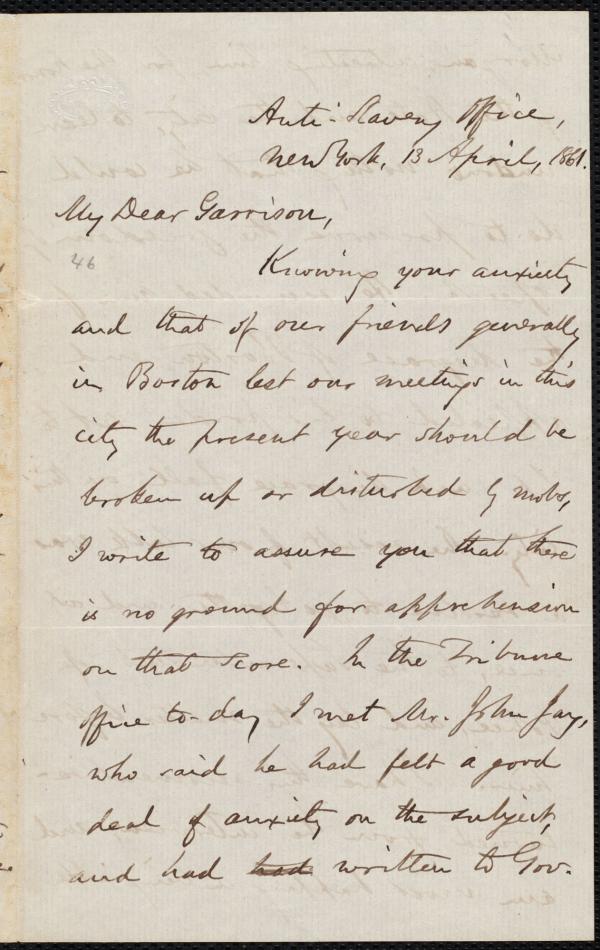 Anti-Slavery Office,
New York, 13 April, 1861.
My Dear Garrison,
46
Knowing your anxiety
and that of our friends generally
in Boston lest our meetings in this
city the present year should be
broken up or disturbed by mobs,
I write to assure you that there
is no ground for apprehension
on that score. In the Tribune
office to-day I met Mr. John Jay,
who said he had felt a good
deal of anxiety on the subject,
and had had written to Gov.